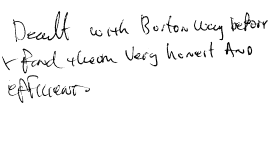 Dealt with Burton Way before
+ find them Very honest AND
efficient.